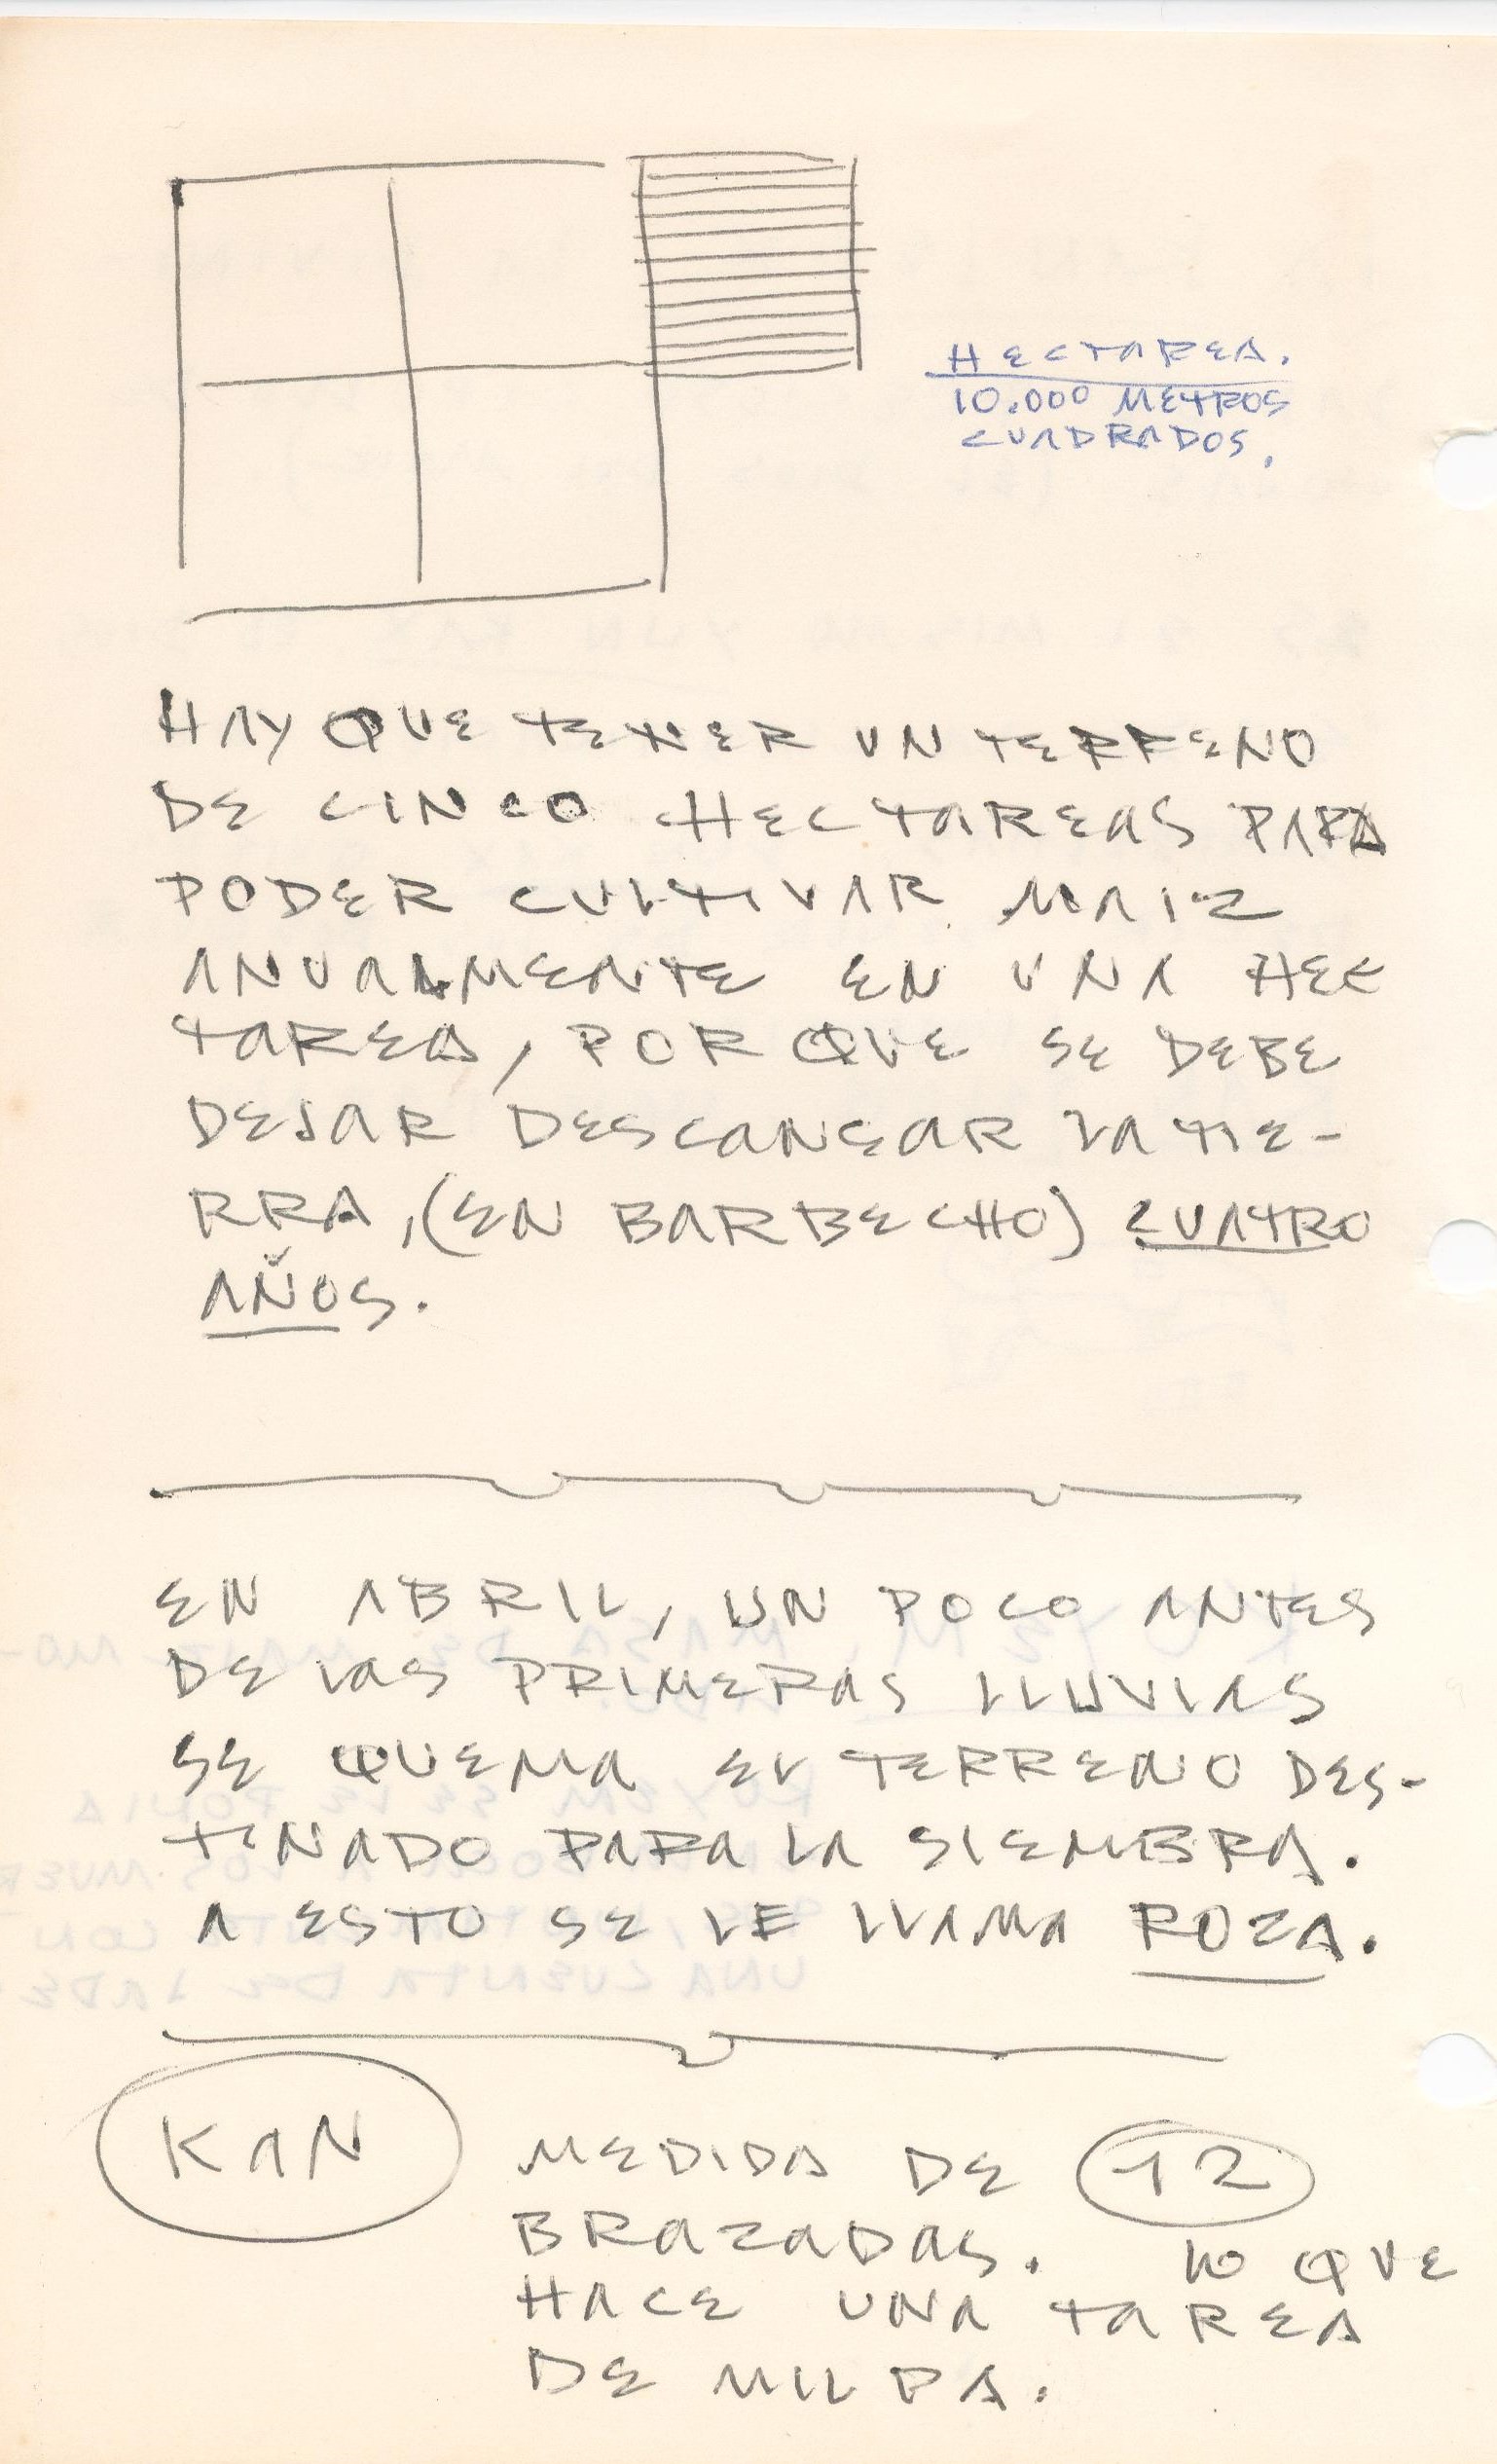 HECTAREA.
10.000 METROS
CUADRADOS.
HAY QUE TENER UN TERRENO
DE CINCO HECTAREAS PARA
PODER CULTIVAR MAIZ
ANUALMENTE EN UNA HEC
TAREA, POR QUE SE DEBE
DEJAR DESCANSAR LA TIE-
RRA, (EN BARBECHO) CUATRO
AÑOS.
EN ABRIL, UN POCO ANTES
DE LAS PRIMERAS LLUVIAS
SE QUEMA EL TERRENO DES-
TINADO PARA LA SIEMBRA.
A ESTO SE LE LLAMA ROZA.
KAN
MEDIDA DE 12
BRAZADAS. LO QUE
HACE UNA TAREA
DE MILPA.